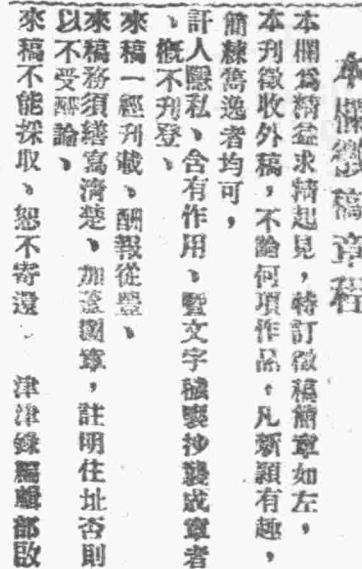 本欄徵稿章程
本欄爲精益求精起見，特訂徵稿簡章如左，
本刊徵收外稿，不論何項作品，凡新穎有趣，
簡練雋逸者均可，
訐人隱私、含有作用、暨文字穢褻抄襲成章者
、概不刊登、
來稿一經刊載、酬報從豐、
來稿務須繕寫淸楚、加蓋圖章，註明住址否則
以不受酬論、
來稿不能採取、恕不寄還
津津錄編輯部啟